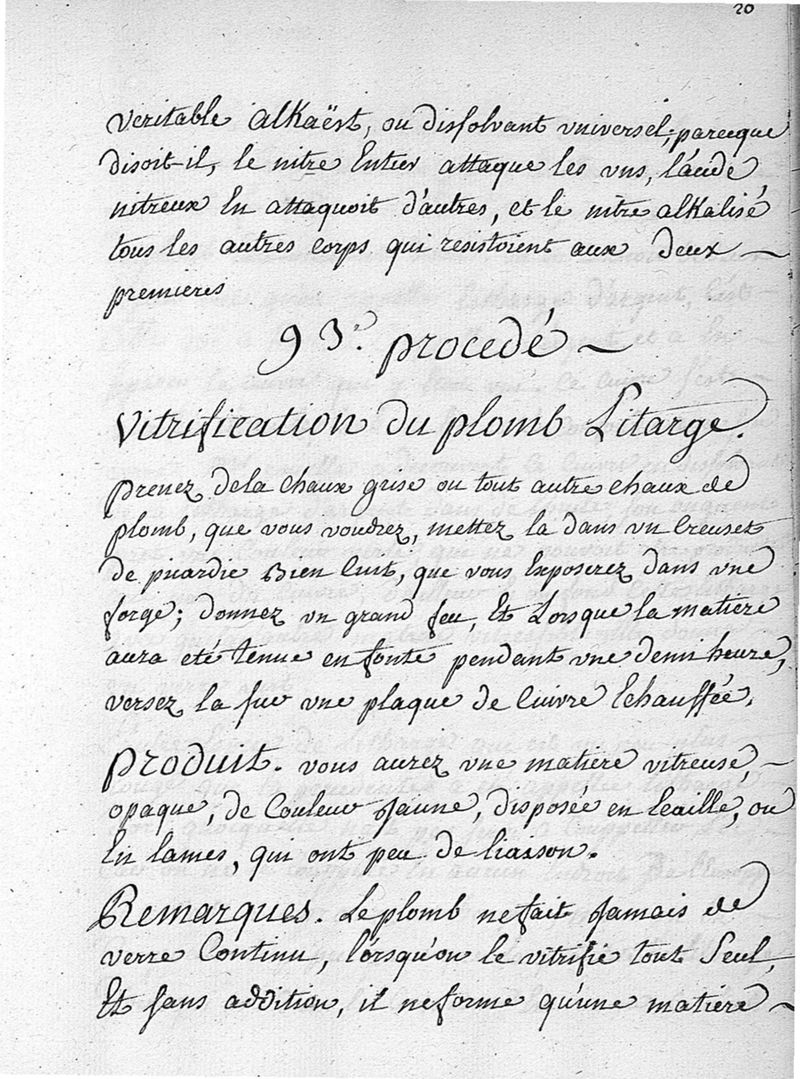 20
veritable alKaëst, ou dissolvant vniversel, parceque
disoit-il, le nitre Entier attaque les vns, l'acide
nitreux En attaquoit d'autres, et le nitre alkalisé
tous les autres corps qui resistoient aux deux
premieres
93.e procedé
Vitrification du plomb Litarge.
prenez de la chaux grise ou tout autre chaux de
plomb, que vous voudrez, mettez la dans vn Creuset
de Bien Cuit, que vous Exposerez dans vne
forge; donnez vn grand feu, Et Lorsque la matiere
aura eté tenue en fonte pendant vne demi heure,
versez la sur vne plaque de Cuivre Echauffée.
produit. vous aurez vne matiere vitreuse,
opaque, de Couleur Jaune, disposée en Ecaille, ou
En lames, qui ont peu de liaison.
Remarques. Le plomb ne fait Jamais de
verre Continu, lorsqu'on le vitrifie tout Seul,
Et sans addition, il ne forme qu'une matiere